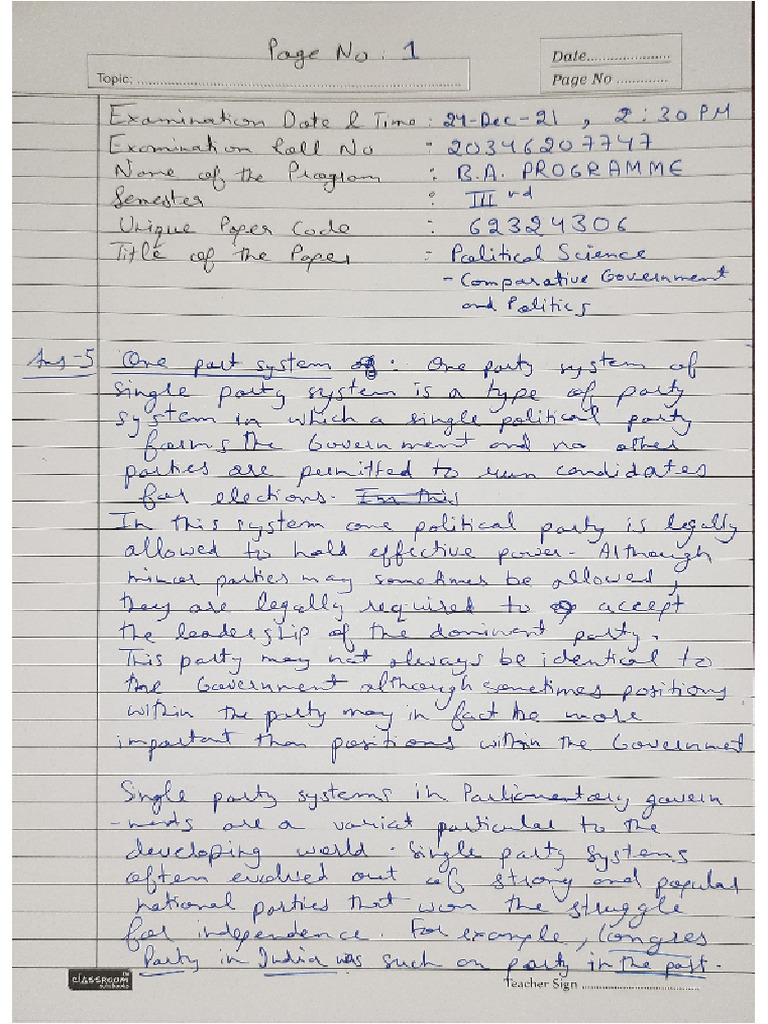 Page No: 1
Date......................
Topic: ......................................................................................
Page No .............
Examination Date & Time : 24-Dec-21 , 2:30 PM
Examination Roll No : 20346207747
Name of the Program : B.A. PROGRAMME
Semester : III rd
Unique Paper Code : 62324306
Title of the Paper : Political Science
- Comparative Government
and Politics
Ans-5 One part system : One party system of
single party system is a type of party
system in which a single political party
forms the Government and no other
parties are permitted to run candidates
for elections. In this
In this system one political party is legally
allowed to hold effective power. Although
minor parties may sometimes be allowed,
they are legally required to accept
the leadership of the dominent party.
This party may not always be identical to
the Government although sometimes positions
within the party may in fact be more
important than positions within the Governmet
Single party systems in Parliamentary govern
-ments are a variat particular to the
developing world. Single party systems
often evolved out of strong and popular
national parties that won the struggle
for independence. For example, Congres
Party in India was such an party in the past.
classroom
notebooks
Teacher Sign ..............................